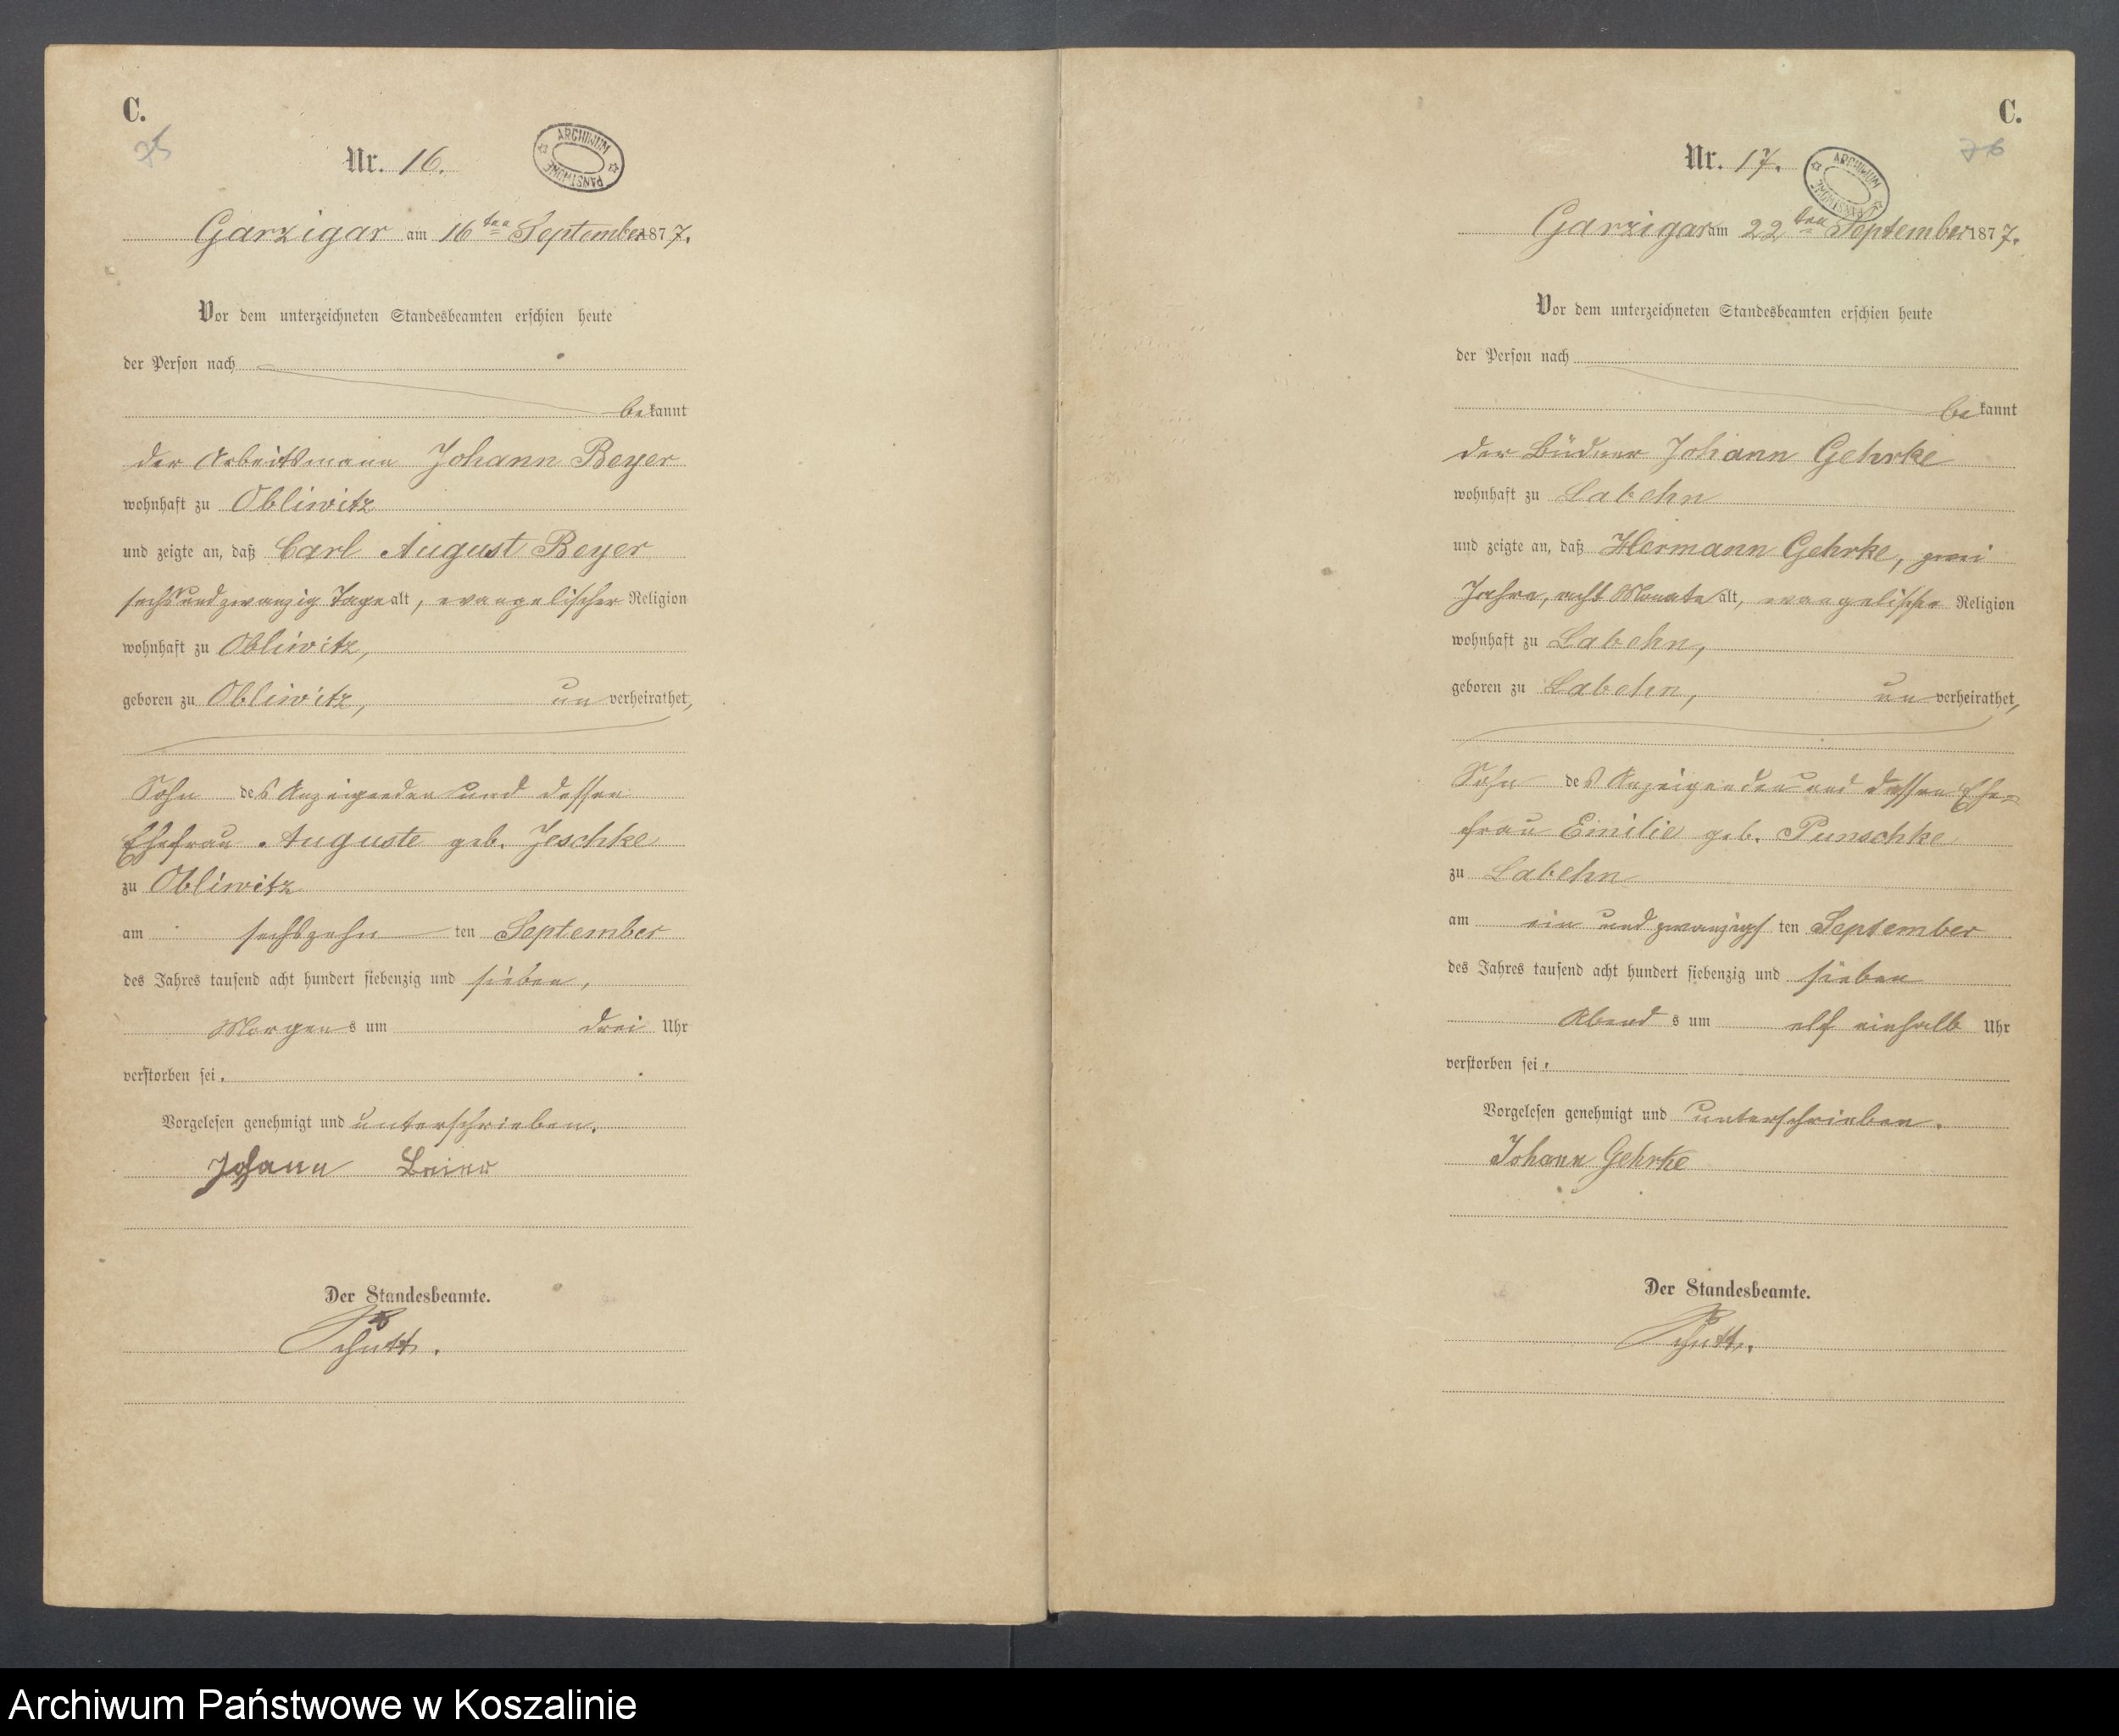 C.
75
Nr. 16.
ARCHIWUM PAŃSTWOWE
Garzigar am 16ten September 1877.
Vor dem unterzeichneten Standesbeamten erschien heute
der Person nach
bekannt
der Arbeitsmann Johann Beyer
wohnhaft zu Obliwitz
und zeigte an, daß Carl August Beyer
sechsundzwanzig Tage alt, evangelischer Religion
wohnhaft zu Obliwitz,
geboren zu Obliwitz, unverheirathet,
Sohn des Anzeigenden und dessen
Ehefrau Auguste geb. Jeschke
zu Obliwitz
am sechszehnten September
des Jahres tausend acht hundert siebenzig und sieben,
Morgens um drei Uhr
verstorben sei.
Vorgelesen genehmigt und unterschrieben.
Johann Beier
Der Standesbeamte.
Schutt.
C.
76
Nr. 17.
ARCHIWUM PAŃSTWOWE
Garzigar am 22ten September 1877.
Vor dem unterzeichneten Standesbeamten erschien heute
der Person nach
bekannt
der Büdner Johann Gehrke
wohnhaft zu Labehn
und zeigte an, daß Hermann Gehrke, zwei
Jahre, acht Monate alt, evangelischer Religion
wohnhaft zu Labehn,
geboren zu Labehn, unverheirathet,
Sohn des Anzeigenden und dessen Ehe-
frau Emilie geb. Punschke
zu Labehn
am ein und zwanzigsten September
des Jahres tausend acht hundert siebenzig und sieben
Abends um elf einhalb Uhr
verstorben sei.
Vorgelesen genehmigt und unterschrieben.
Johann Gehrke
Der Standesbeamte.
Schutt.
Archiwum Państwowe w Koszalinie